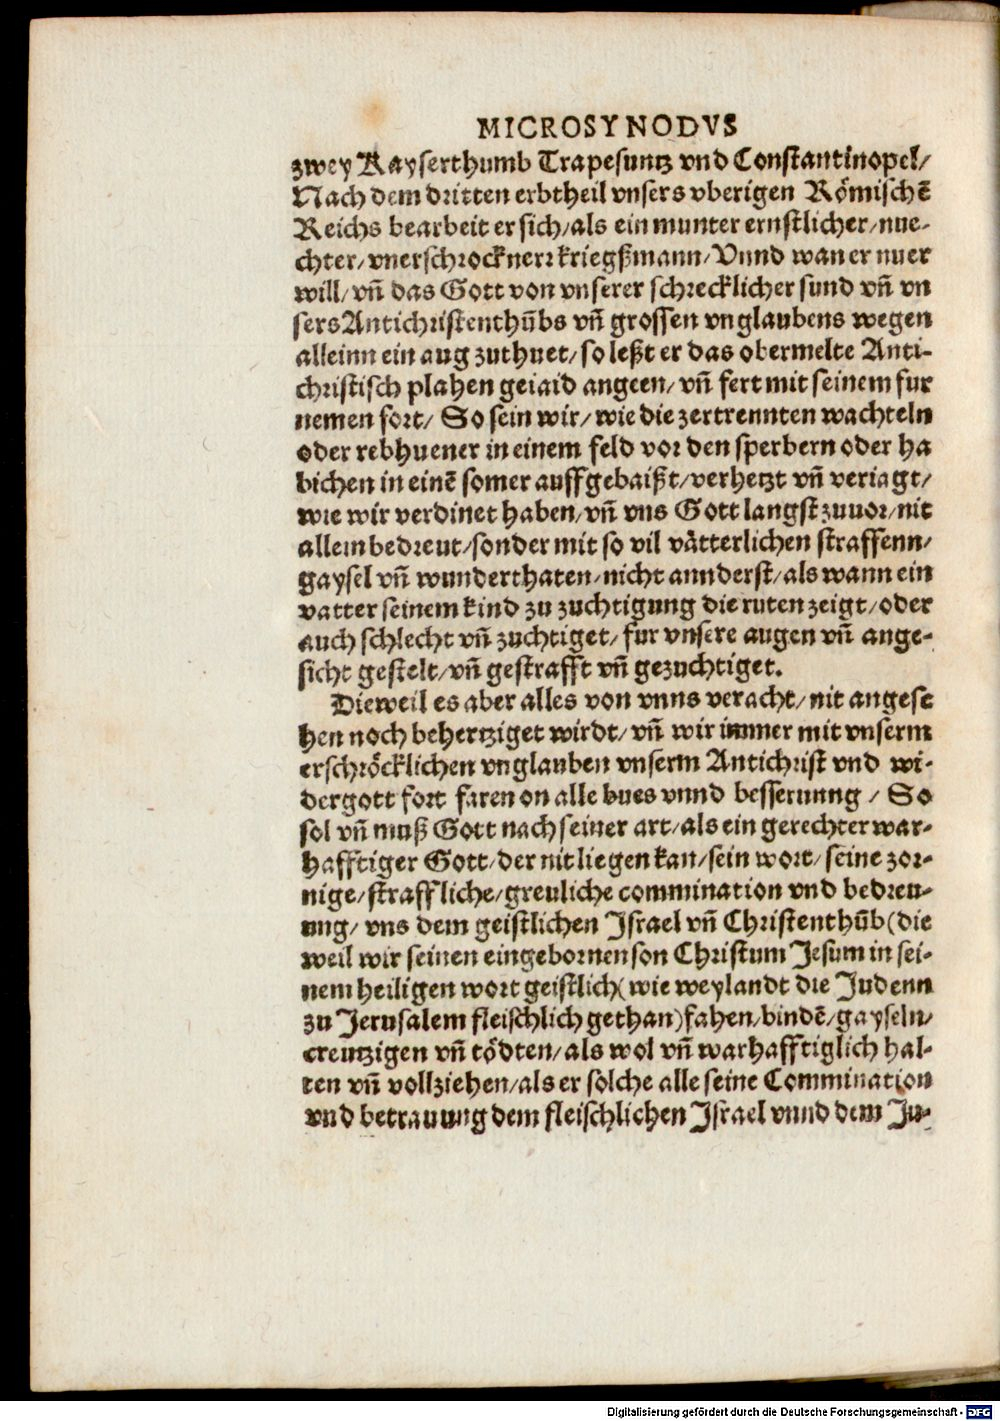 MICROSYNODVS
zwey Kayserthumb Trapesuntz vnd Constantinopel/
Nach dem dritten erbtheil vnsers vberigen Römischē
Reichs bearbeit er sich/als ein munter ernstlicher/nue-
chter/vnerschrocknerr kriegßmann/Vnnd wan er nuer
will/vñ das Gott von vnserer schrecklicher sund vñ vn
sers Antichristenthūbs vñ grossen vnglaubens wegen
alleinn ein aug zuthuet/so leßt er das obermelte Anti-
christisch plahen geiaid angeen/vñ fert mit seinem fur
nemen fort/ So sein wir/wie die zertrennten wachteln
oder rebhuener in einem feld vor den sperbern oder ha
bichen in einē somer auffgebaißt/verhetzt vñ veriagt/
wie wir verdinet haben/vñ vns Gott langst zuuor/nit
allein bedreut/sonder mit so vil vätterlichen straffenn/
gaysel vñ wunderthaten/nicht annderst/als wann ein
vatter seinem kind zu zuchtigung die ruten zeigt/oder
auch schlecht vñ zuchtiget/fur vnsere augen vñ ange-
sicht gestelt/vñ gestrafft vñ gezuchtiget.
Dieweil es aber alles von vnns veracht/nit angese
hen noch behertziget wirdt/vñ wir immer mit vnserm
erschröcklichen vnglauben vnserm Antichrist vnd wi-
dergott fort faren on alle bues vnnd besserunng / So
sol vñ muß Gott nach seiner art/als ein gerechter war-
hafftiger Gott/der nit liegen kan/sein wort/seine zor-
nige/straffliche/greuliche commination vnd bedreu-
ung/ vns dem geistlichen Israel vñ Christenthūb(die
weil wir seinen eingebornen son Christum Jesum in sei-
nem heiligen wort geistlich(wie weylandt die Judenn
zu Jerusalem fleischlich gethan)fahen/bindē/gayseln/
creutzigen vñ tödten/als wol vñ warhafftiglich hal-
ten vñ vollziehen/als er solche alle seine Commination
vnd betrauung dem fleischlichen Israel vnnd dem Ju-
Digitalisierung gefördert durch die Deutsche Forschungsgemeinschaft - DFG